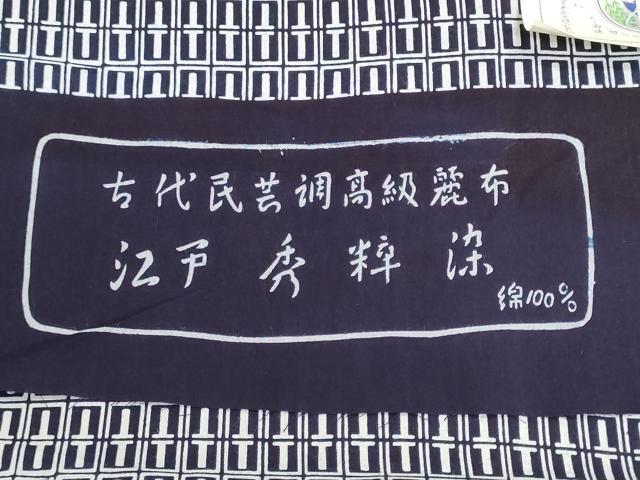 古代民芸調高級麗布
江戸秀粋染
綿100%